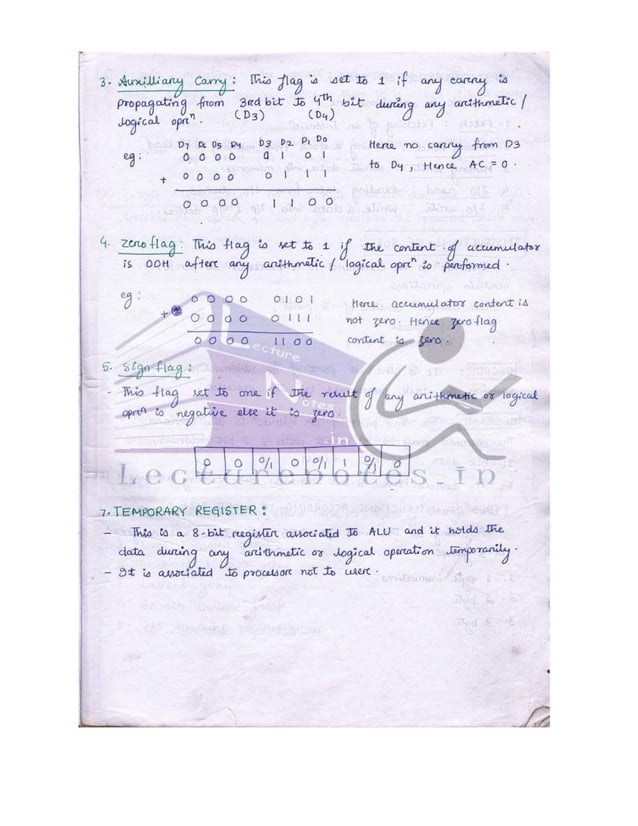 3. Auxilliary Carry : This flag is set to 1 if any carry is
propagating from 3rd bit to 4th bit during any arithmetic /
logical oprn. (D3) (D4)
D7 D6 D5 D4 D3 D2 D1 D0
eg: 0 0 0 0 0 1 0 1
+ 0 0 0 0 0 1 1 1
0 0 0 0 1 1 0 0
Here no carry from D3
to D4, Hence AC = 0.
4. Zero flag : This flag is set to 1 if the content of accumulator
is 00H after any arithmetic / logical oprn is performed.
eg: 0 0 0 0 0101
+ 0 0 0 0 0 111
0 0 0 0 1100
Here accumulator content is
not zero. Hence zero flag
content is zero.
5. Sign flag :
- This flag set to one if the result of any arithmetic or logical
oprn is negative else it is zero.
0 0 0/1 0 0/1 1 0/1 0
Lecture
Notes
.in
Lecturenotes.in
7. TEMPORARY REGISTER :
- This is a 8-bit register associated to ALU and it holds the
data during any arithmetic or logical operation temporarily.
- It is associated to processor not to user.